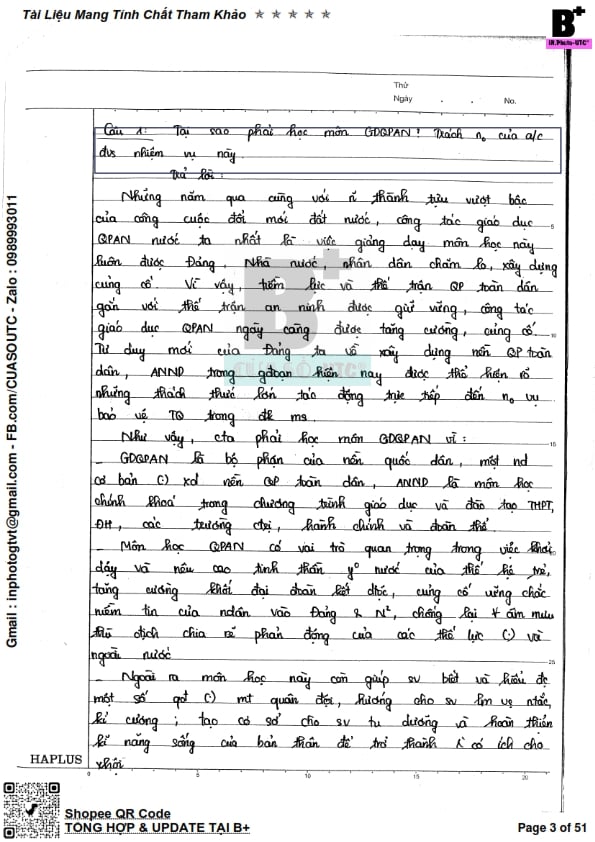 Tài Liệu Mang Tính Chất Tham Khảo ★ ★ ★ ★ ★
B+
IN.Photo-UTC
Thứ
Ngày No.
Câu 1: Tại sao phải học môn GDQPAN? Trách n0 của a/c
đvs nhiệm vụ này
Trả lời:
Những năm qua cùng với ~ thành tựu vượt bậc
của công cuộc đổi mới đất nước, công tác giáo dục
QPAN nước ta nhất là việc giảng dạy môn học này
luôn được Đảng, Nhà nước, nhân dân chăm lo, xây dựng
củng cố. Vì vậy, tiềm lực và thế trận QP toàn dân
gắn với thế trận an ninh được giữ vững, công tác
giáo dục QPAN ngày càng được tăng cường, củng cố.
Tư duy mới của Đảng ta về xây dựng nền QP toàn
dân, ANND trong gđoạn hiện nay được thể hiện rõ
những thách thức lớn tác động trực tiếp đến n0 vụ
bảo vệ TQ trong đk mới
Như vậy, cta phải học môn GDQPAN vì:
_ GDQPAN là bộ phận của nền quốc dân, một nd
cơ bản (:) xd nền QP toàn dân, ANND là môn học
chính khoá trong chương trình giáo dục và đào tạo THPT,
ĐH, các trường ctrị, hành chính và đoàn thể
_ Môn học QPAN có vai trò quan trọng trong việc khơi
dậy và nêu cao tinh thần y0 nước của thế hệ trẻ,
tăng cường khối đại đoàn kết dtộc, củng cố vững chắc
niềm tin của ndân vào Đảng & N2, chống lại âm mưu
thù địch chia rẽ phản động của các thế lực (:) và
ngoài nước
_ Ngoài ra môn học này còn giúp sv biết và hiểu đc
một số (:) mt quân đội, hướng cho sv ntắc,
kỉ cương; tạo cơ sở cho sv tu dưỡng và hoàn thiện
kĩ năng sống của bản thân để trở thành có ích cho
xhội
5
10
15
20
25
HAPLUS
0 5 10 15 20
B+
CỬA SỔ UTC
Gmail : inphotogtvt@gmail.com - FB.com/CUASOUTC - Zalo : 0989993011
Shopee QR Code
TỔNG HỢP & UPDATE TẠI B+
Page 3 of 51